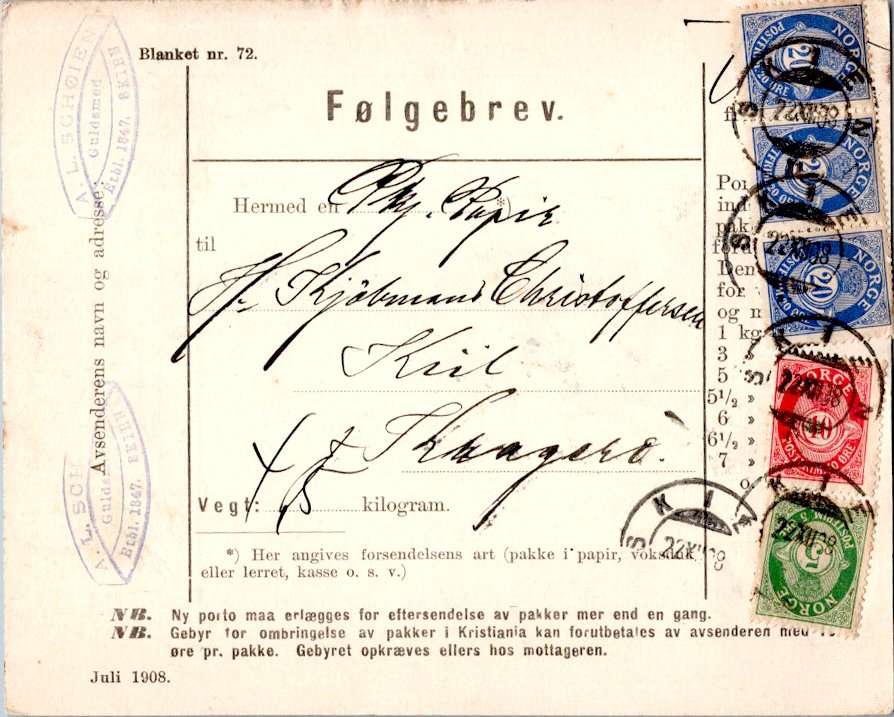 Blanket nr. 72.
A. L. SCHØIEN
Guldsmed
Etbl. 1847. SKIEN
Avsenderens navn og adresse:
A. L. SCH
Gulds
Etbl. 1847. SKIEN
Følgebrev.
Hermed en Pk. i Papir *)
til
Hr Kjöbmand Christoffersen
Kiil
Kragerö
Vegt: kilogram.
*) Her angives forsendelsens art (pakke i papir, voksduk
eller lerret, kasse o. s. v.)
NB. Ny porto maa erlægges for eftersendelse av pakker mer end en gang.
NB. Gebyr for ombringelse av pakker i Kristiania kan forutbetales av avsenderen med
øre pr. pakke. Gebyret opkræves ellers hos mottageren.
Juli 1908.
Por
ind
pak
ford
Den
for
og m
1 kg
3 »
5 »
5½ »
6 »
6½ »
7 »
o.
NORGE
20
POSTFRIM. 20 ØRE
NORGE
20
NORGE
20
20 ØRE
NORGE
10
POSTFRIM. 10 ØRE
NORGE
5
POSTFRIM 5
SKIEN
22XII08
SKIEN
22XII08
SKIEN
22XII08
SKIEN
22XII08
SKIE
22XII08